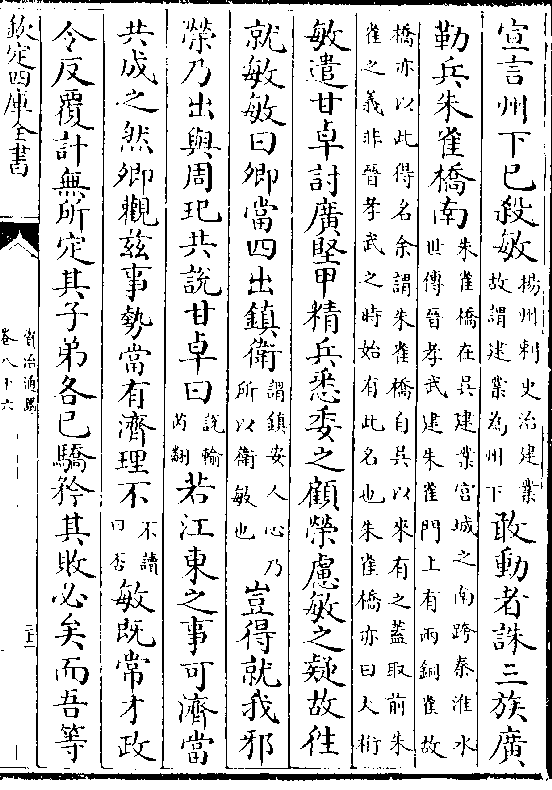 宣言州下已殺敏揚州刺史治建業故謂建業為州下敢動者誅三族廣
勒兵朱雀橋南朱雀橋在吳建業宮城之南跨秦淮水世傳晉孝武建朱雀門上有兩銅雀故
橋亦以此得名余謂朱雀橋自吳以來有之蓋取前朱雀之義非晉孝武之時始有此名也朱雀橋亦曰大桁
敏遣甘卓討廣堅甲精兵悉委之顧榮慮敏之疑故徃
就敏敏曰卿當四出鎮衛謂鎮安人心乃所以衛敏也豈得就我邪
榮乃出與周玘共説甘卓曰説輸芮翻若江東之事可濟當
共成之然卿觀兹事勢當有濟理不不讀曰否敏既常才政
令反覆計無所定其子弟各已驕矜其敗必矣而吾等
欽定四庫全書
資治通鑑
卷八十六